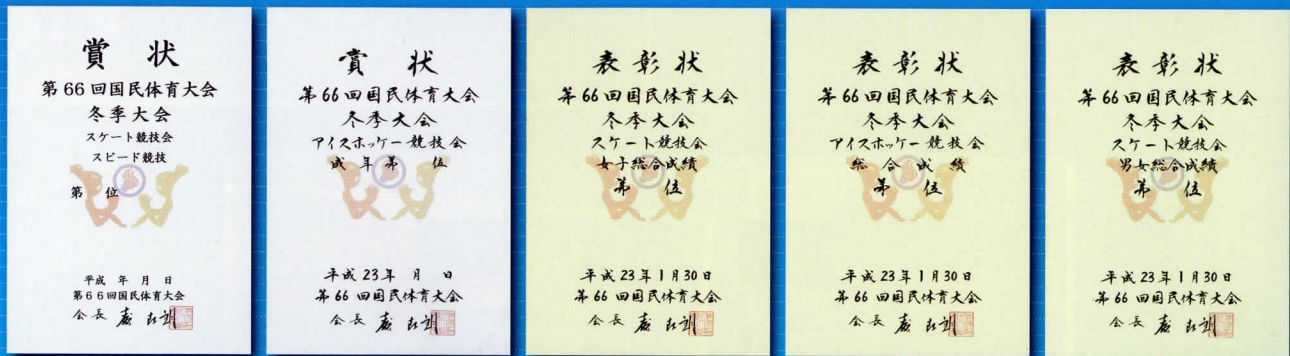 賞 状
第66回国民体育大会
冬季大会
スケート競技会
スピード競技
第 位
平成 年 月 日
第66回国民体育大会
会長
賞 状
第66回国民体育大会
冬季大会
アイスホッケー競技会
成年第 位
平成23年 月 日
第66回国民体育大会
会長
表彰状
第66回国民体育大会
冬季大会
スケート競技会
女子総合成績
第 位
平成23年1月30日
第66回国民体育大会
会長
表彰状
第66回国民体育大会
冬季大会
アイスホッケー競技会
総合成績
第 位
平成23年1月30日
第66回国民体育大会
会長
表彰状
第66回国民体育大会
冬季大会
スケート競技会
男女総合成績
第 位
平成23年1月30日
第66回国民体育大会
会長